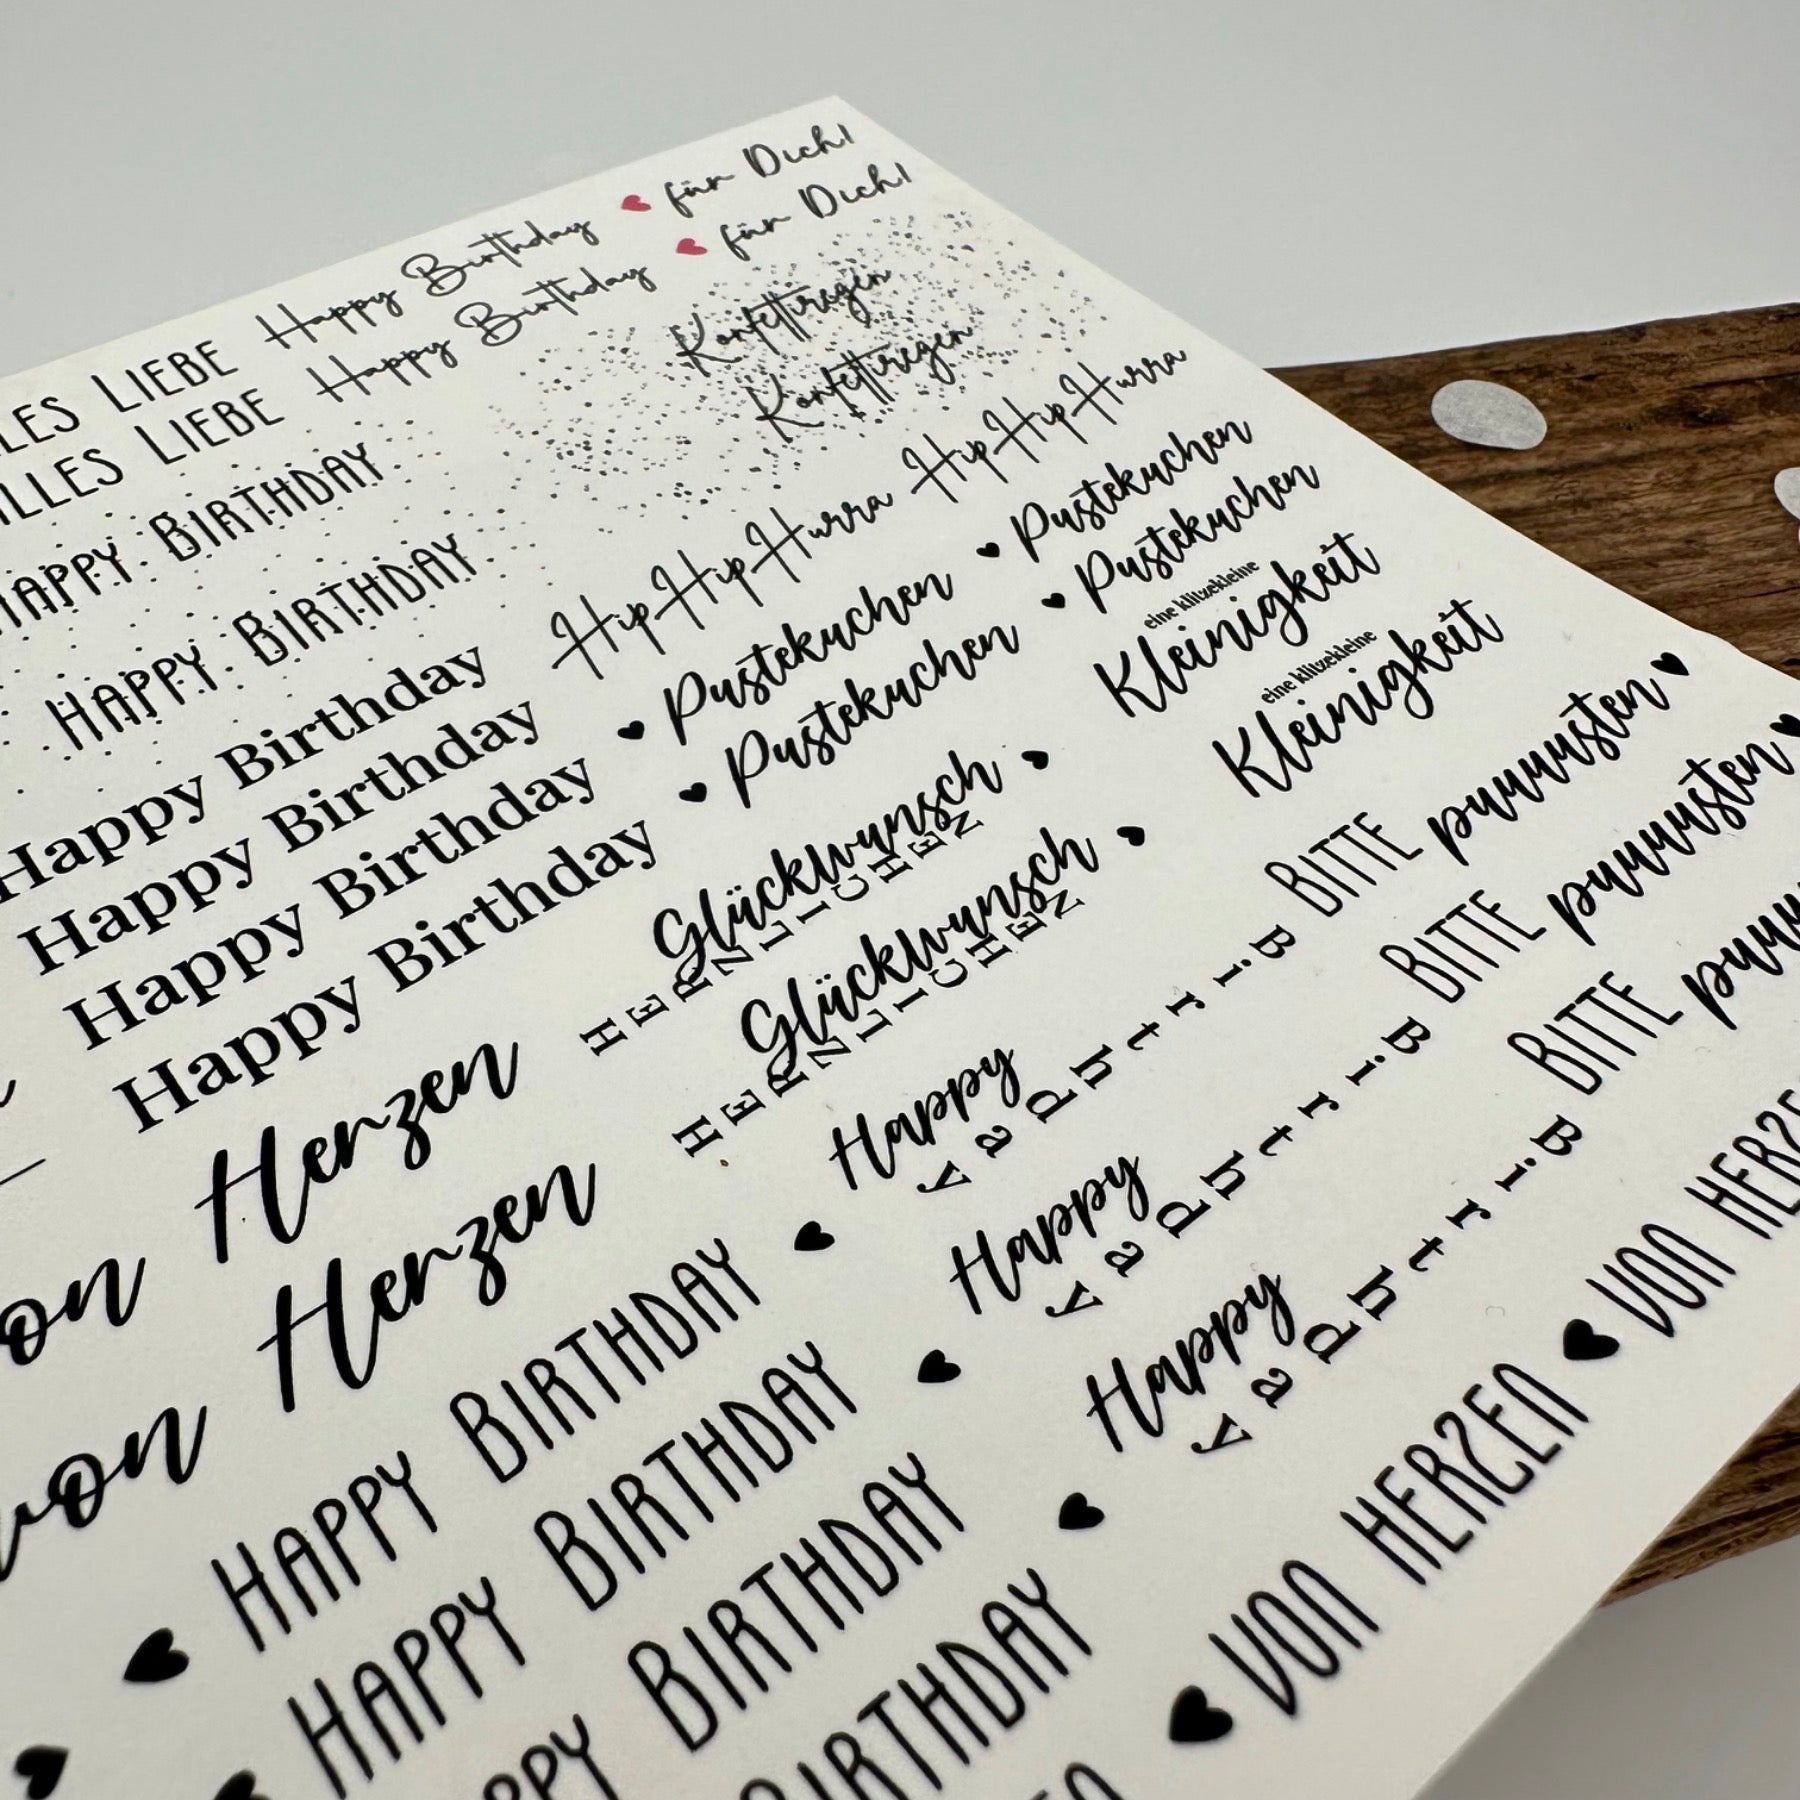 LIEBE Happy Birthday für Dich!
LIEBE Happy Birthday für Dich!
Konfettiregen
Konfettiregen
HAPPY BIRTHDAY
HAPPY BIRTHDAY
HipHipHurra HipHipHurra
Happy Birthday
Happy Birthday
Happy Birthday
Happy Birthday
Pustekuchen Pustekuchen
Pustekuchen Pustekuchen
eine klitzekleine
Kleinigkeit
eine klitzekleine
Kleinigkeit
Glückwunsch
HERZLICHEN
Glückwunsch
HERZLICHEN
BITTE puuuusten
BITTE puuuusten
BITTE
Herzen
von Herzen
Happy
Birthday
Happy
Birthday
Happy
Birthday
HAPPY BIRTHDAY
HAPPY BIRTHDAY
BIRTHDAY
BIRTHDAY
VON HERZEN VON
VON HERZEN